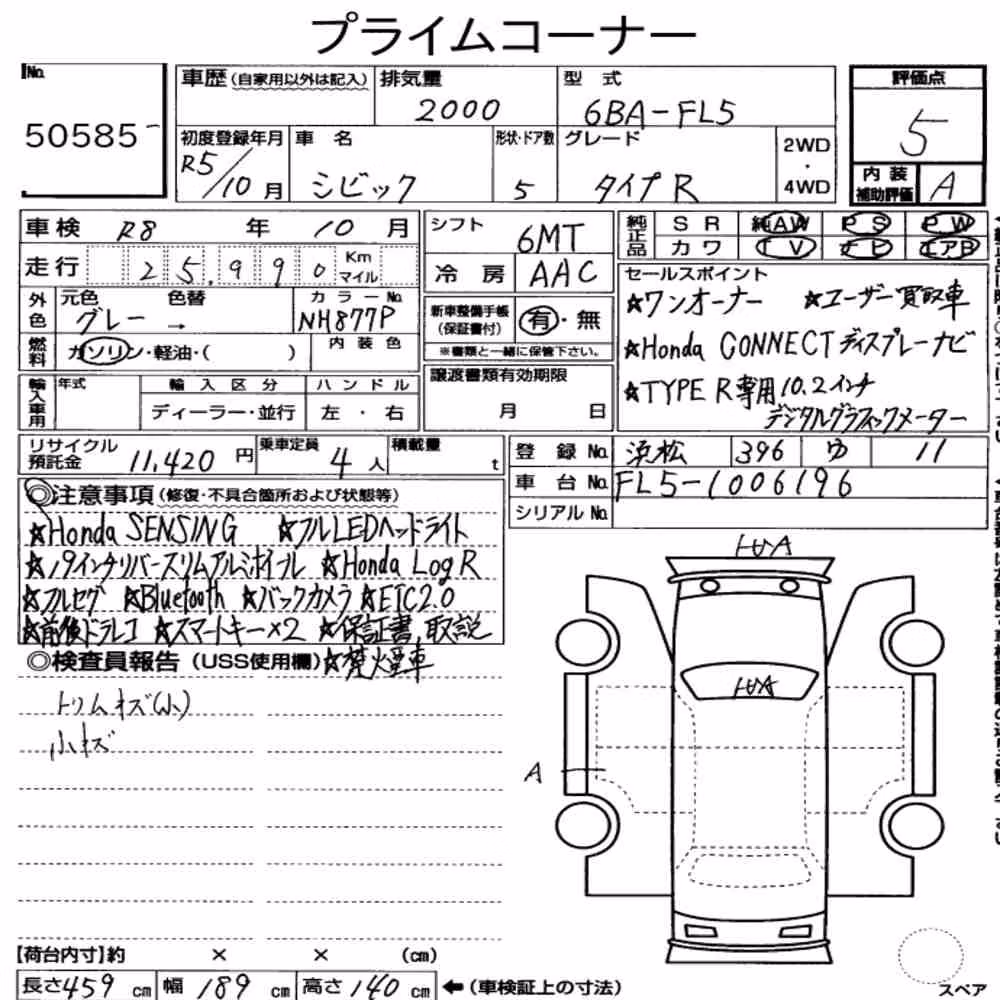 プライムコーナー
No. 50585
車歴 (自家用以外は記入) 排気量 2000 型式 6BA-FL5 評価点 5
初度登録年月 R5/10月 車名 シビック 形状・ドア数 5 グレード タイプR 2WD・4WD 内装補助評価 A
車検 R8年 10月 シフト 6MT 純正品 SR 純AW PS PW
走行 25,990 Km マイル 冷房 AAC カワ TV ナビ エアB
外色 元色 グレー → 色替 カラーNo. NH877P 新車整備手帳(保証書付) 有・無 セールスポイント
※書類と一緒に保管下さい。
☆ワンオーナー ☆ユーザー買取車
燃料 ガソリン・軽油・( ) 内装色
☆Honda CONNECTディスプレーナビ
☆TYPE R専用10.2インチ
デジタルグラフィックメーター
輸入車用 年式 輸入区分 ディーラー・並行 ハンドル 左・右 譲渡書類有効期限 月 日
リサイクル預託金 11,420円 乗車定員 4人 積載量 t 登録No. 浜松 396 ゆ 11
車台No. FL5-1006196
シリアルNo.
◎注意事項 (修復・不具合箇所および状態等)
☆Honda SENSING ☆フルLEDヘッドライト
☆19インチリバースリムアルミホイール ☆Honda Log R
☆フルセグ ☆Bluetooth ☆バックカメラ ☆ETC2.0
☆前後ドラレコ ☆スマートキー×2 ☆保証書、取説
◎検査員報告 (USS使用欄) ☆禁煙車
トリムキズ(小)
小キズ
A
【荷台内寸】約 × × (cm)
長さ459cm 幅189cm 高さ140cm ←(車検証上の寸法)
スペア